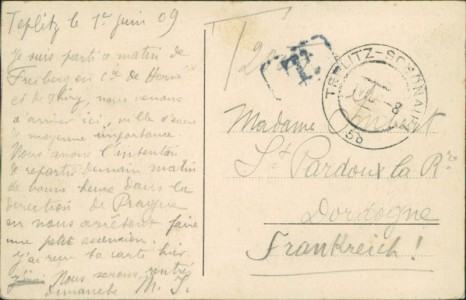 Teplitz le 1er Juin 09
Je suis parti ce matin de
Freiberg en Cie de Hervé
et de Thiry, nous venons
d'arriver ici, ville d'eaux
de moyenne importance
Nous avons l'intention
de repartir demain matin
de bonne heure dans la
direction de Prague
en nous arrêtant faire
une petite ascension.
J'ai reçu ta carte hier
Nous serons rentrés
dimanche M. J.
T
T.
TEPLITZ-SCHÖNAU
Madame
St Pardoux la Rre
Dordogne
Frankreich!